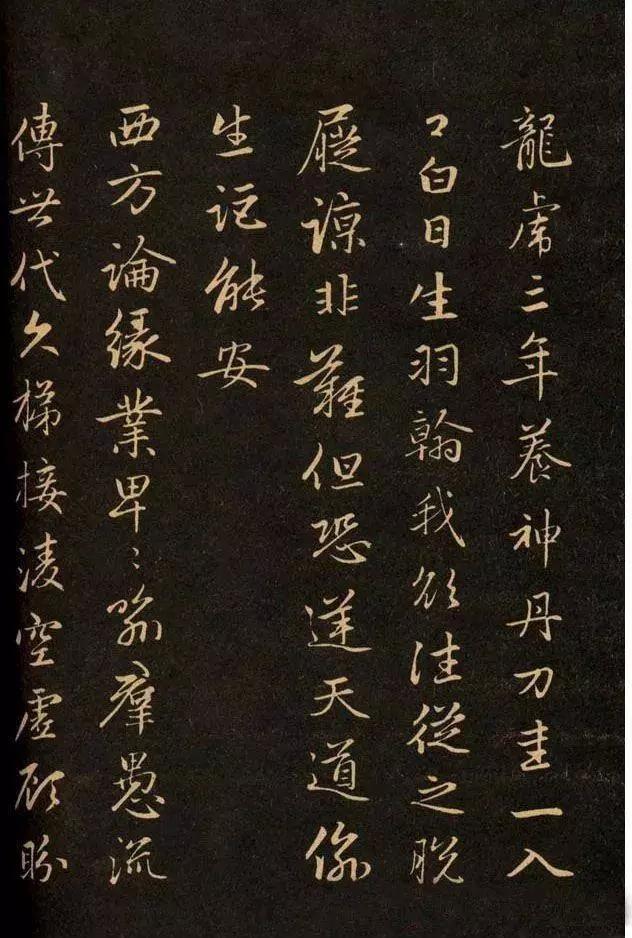 龍虎三年養神丹刀圭一入
口白日生羽翰我欲往從之脱
屣諒非難但恐逆天道偷
生詎能安
西方論緣業卑卑喻群愚流
傳世代久梯接凌空虛顧盼